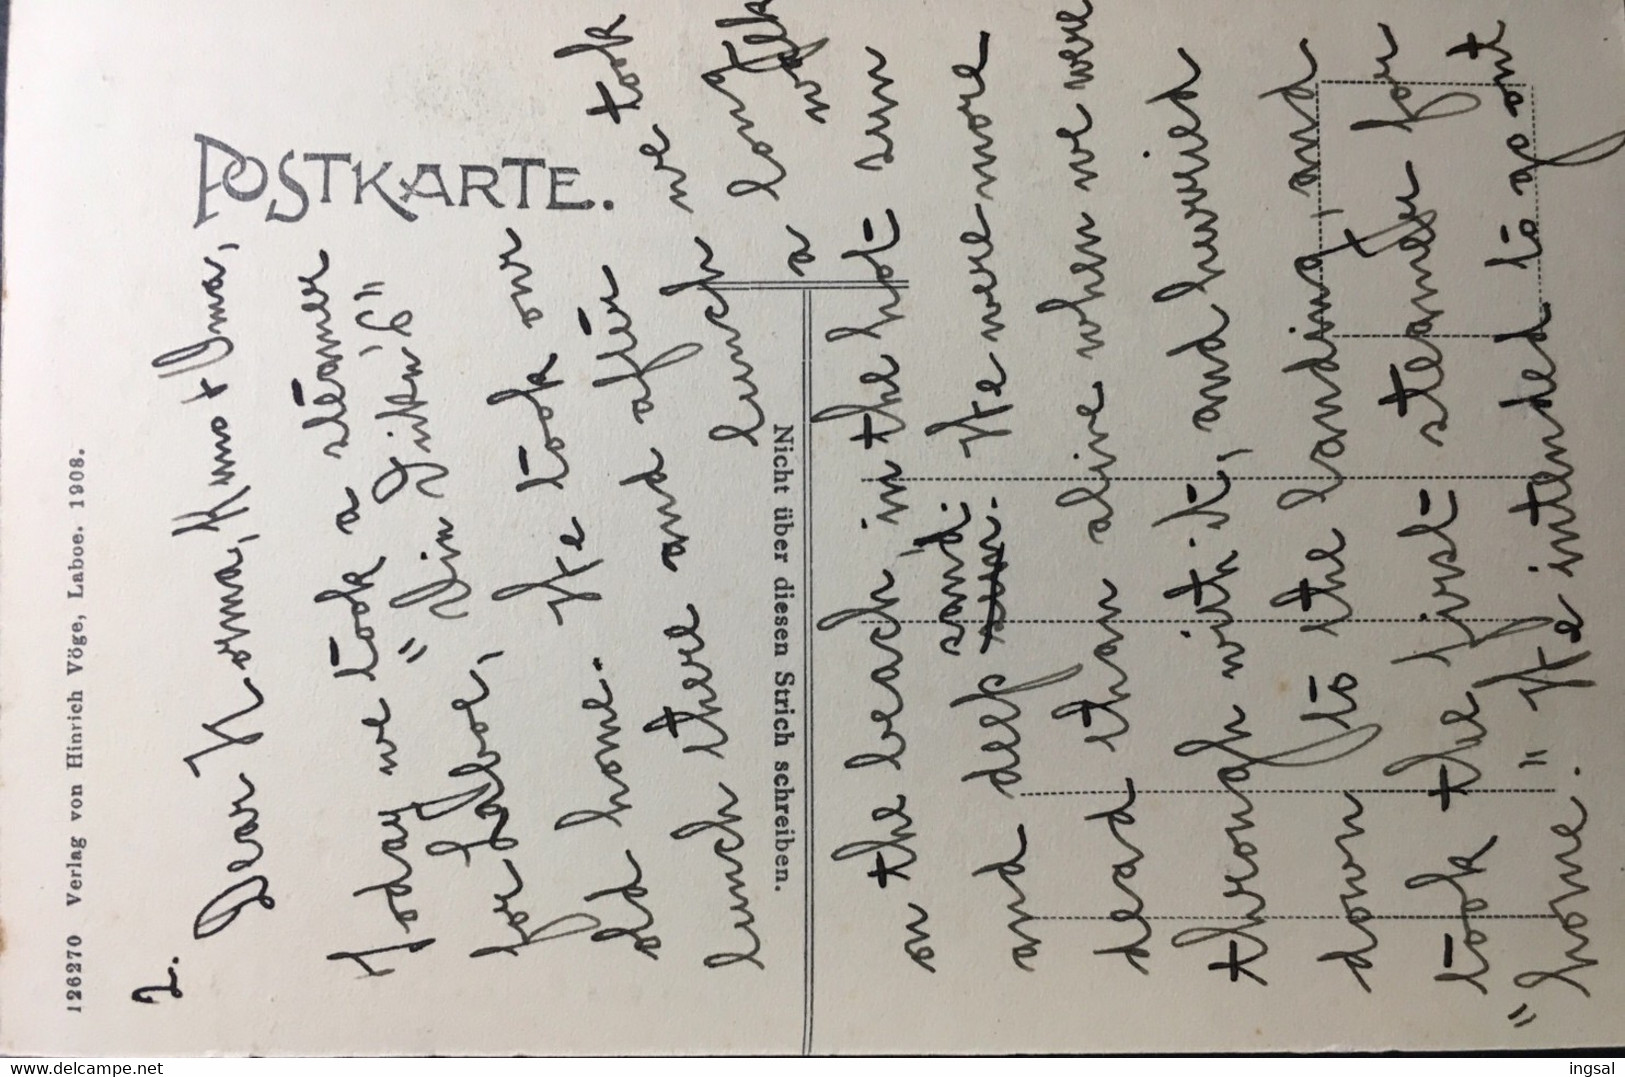 126270 Verlag von Hinrich Vöge, Laboe. 1908.
POSTKARTE.
Nicht über diesen Strich schreiben.
2.
Dear Norma, Kuno + Oma,
Today we took a steamer
"Vim
for Laboe, We took our
old home. and after we took
lunch there lunch a long walk
on the beach in the hot sun
and deep sand. We were more
sun.
dead than alive when we were
through with it, and hurried
down to the landing, and
took the first steamer for
"home." We intended to go out
delcampe.net
ingsal